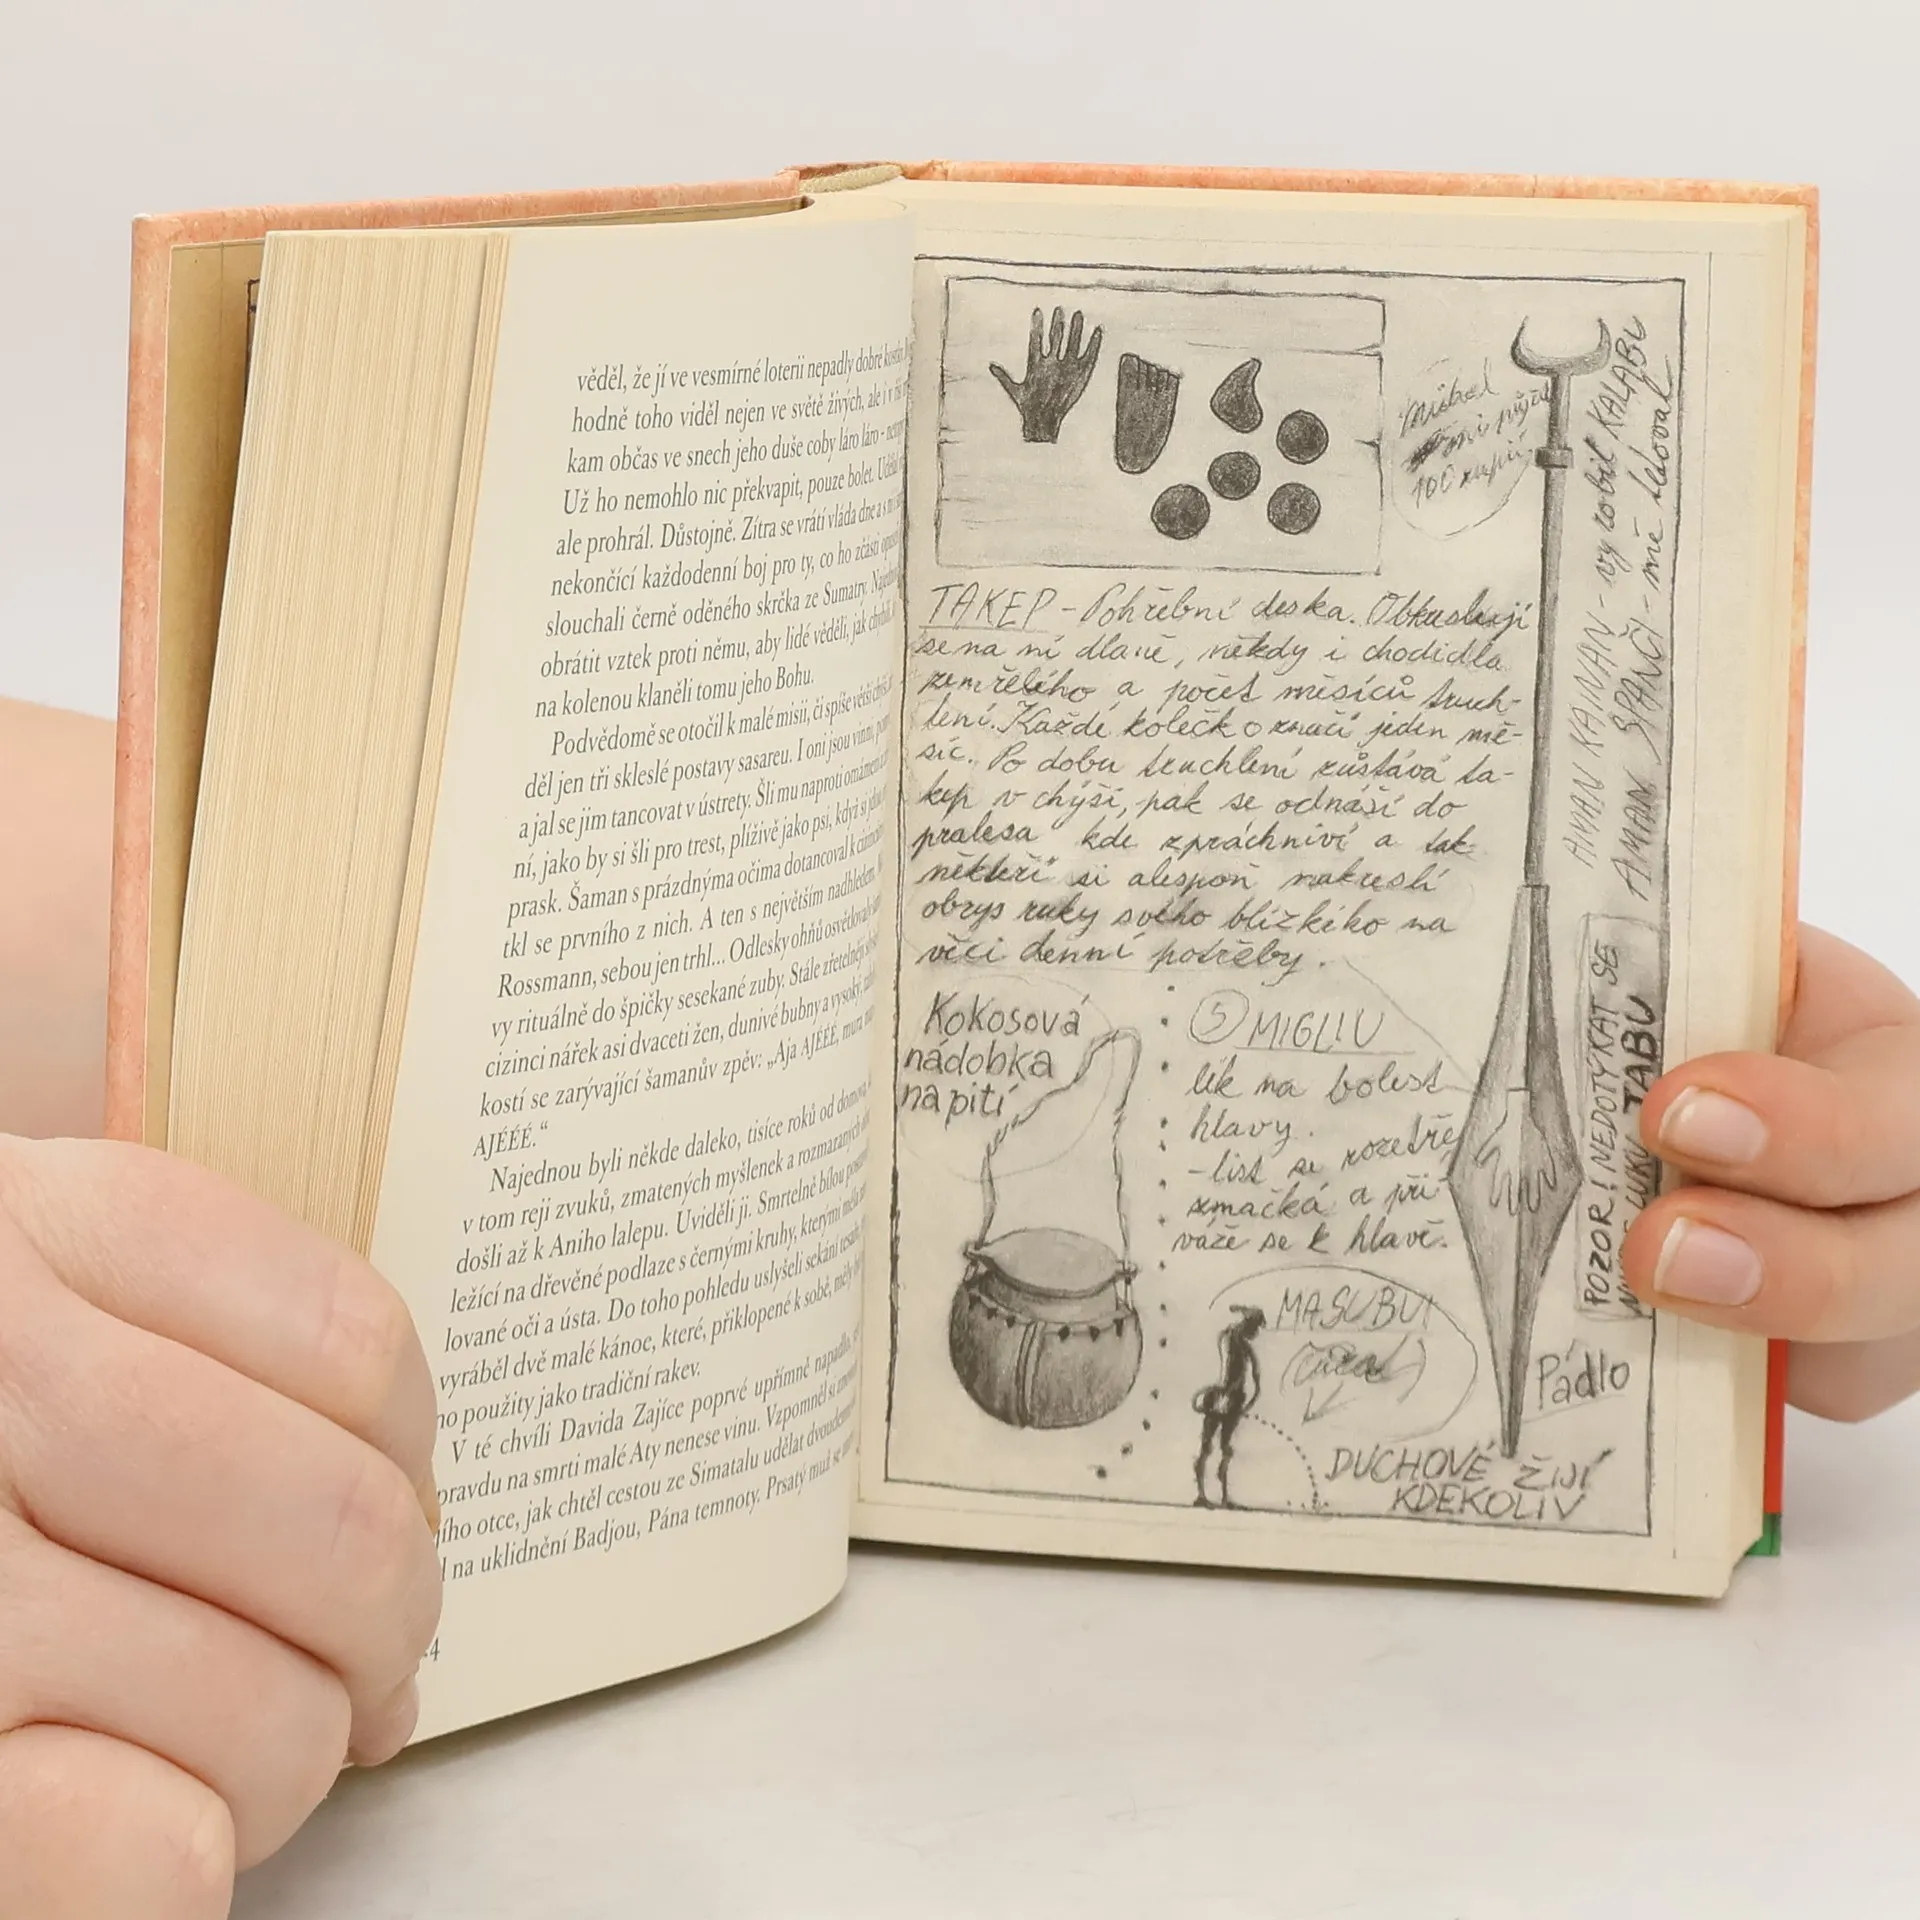 věděl, že jí ve vesmírné loterii nepadly dobré
hodně toho viděl nejen ve světě živých, ale i v
kam občas ve snech jeho duše coby láro láro -
Už ho nemohlo nic překvapit, pouze bolet. Udělal
ale prohrál. Důstojně. Zítra se vrátí vláda dne a s
nekončící každodenní boj pro ty, co ho zčásti
slouchali černě oděného skrčka ze Sumatry.
obrátit vztek proti němu, aby lidé věděli, jak
na kolenou klaněli tomu jeho Bohu.
Podvědomě se otočil k malé misii, či spíše větší
děl jen tři skleslé postavy sasareu. I oni jsou vinni,
a jal se jim tancovat v ústrety. Šli mu naproti
ní, jako by si šli pro trest, plíživě jako psi, když si
prask. Šaman s prázdnýma očima dotancoval k
tkl se prvního z nich. A ten s největším nadhledem,
Rossmann, sebou jen trhl... Odlesky ohňů
vy rituálně do špičky sesekané zuby. Stále zřetelněji
cizinci nářek asi dvaceti žen, dunivé bubny a vysoký,
kostí se zarývající šamanův zpěv: „Aja AJÉÉÉ,
AJÉÉÉ.“
Najednou byli někde daleko, tisíce roků od domova,
v tom reji zvuků, zmatených myšlenek a rozmazaných
došli až k Aniho lalepu. Uviděli ji. Smrtelně bílou
ležící na dřevěné podlaze s černými kruhy, kterými měla
lované oči a ústa. Do toho pohledu uslyšeli sekání
vyráběl dvě malé kánoe, které, přiklopené k sobě, měly
no použity jako tradiční rakev.
V té chvíli Davida Zajíce poprvé upřímně napadlo,
pravdu na smrti malé Aty nenese vinu. Vzpomněl si
jího otce, jak chtěl cestou ze Simatalu udělat
l na uklidnění Badjou, Pána temnoty. Prsatý muž se
4
Michal
mi půjčil
100 rupií
TAKEP - Pohřební deska. Obkreslují
se na ní dlaně, někdy i chodidla
zemřelého a počet měsíců truch-
lení. Každé kolečko značí jeden mě-
síc. Po dobu truchlení zůstává ta-
kep v chýši, pak se odnáší do
pralesa kde zpráchniví a tak
někteří si alespoň nakreslí
obrys ruky svého blízkého na
věci denní potřeby.
Kokosová
nádobka
na pití
5 MIGLIU
lék na bolest
hlavy.
- list se rozetře,
zmačká a při
váže se k hlavě.
MASUBUI
DUCHOVÉ ŽIJÍ
KDEKOLIV
Pádlo
AMAN KAINAN - vyrobil KALABU
AMAN SPANČI - mě tetoval
POZOR! NEDOTÝKAT SE
LUKU TABU